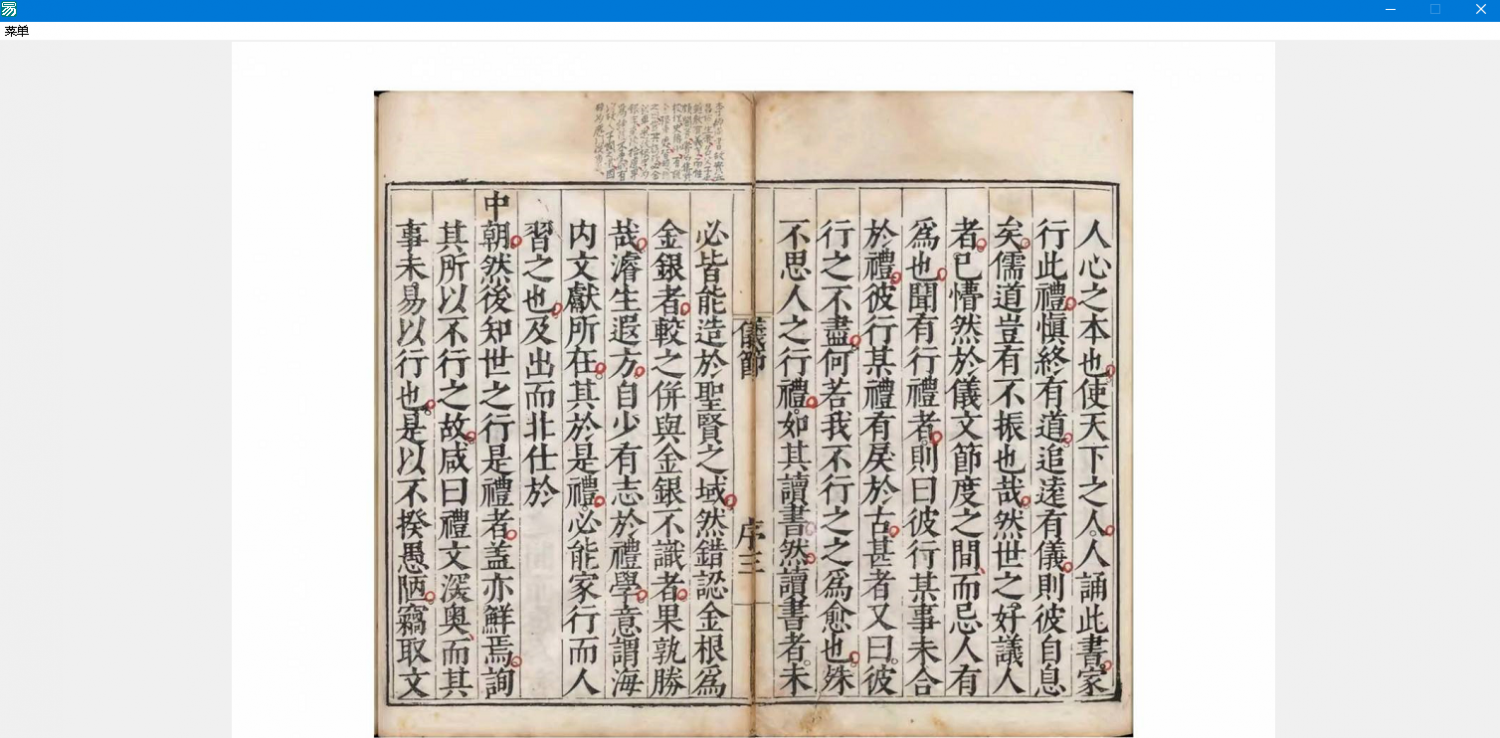 菜单
人心之本也使天下之人人誦此書家
行此禮慎終有道追遠有儀則彼自息
矣儒道豈有不振也哉然世之好議人
者已懵然於儀文節度之間而忌人有
爲也聞有行禮者則曰彼行某事未合
於禮彼行某禮有戾於古甚者又曰彼
行之不盡何若我不行之之爲愈也殊
不思人之行禮如其讀書然讀書者未
儀節 序三
必皆能造於聖賢之域然錯認金根爲
金銀者較之併與金銀不識者果孰勝
哉濬生遐方自少有志於禮學意謂海
内文獻所在其於是禮必能家行而人
習之也及出而北仕於
中朝然後知世之行是禮者盖亦鮮焉詢
其所以不行之故咸曰禮文深奥而其
事未易以行也是以不揆愚陋竊取文